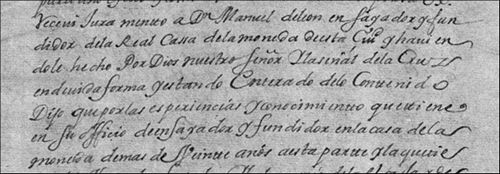 Reciui Juramento a Dn Manuel de leon ensayador y fun
didor dela Real Cassa dela moneda desta Ciud y hauien
dole hecho Por Dios nuestro señor y la señal dela Cruz
en deuida forma y estando Enterado delo Contenido
Dijo que por las esperiencias y conocimiento que tiene
en su officio de ensayador y fundidor en la casa dela
moneda demas de Veinte años a esta parte y la que